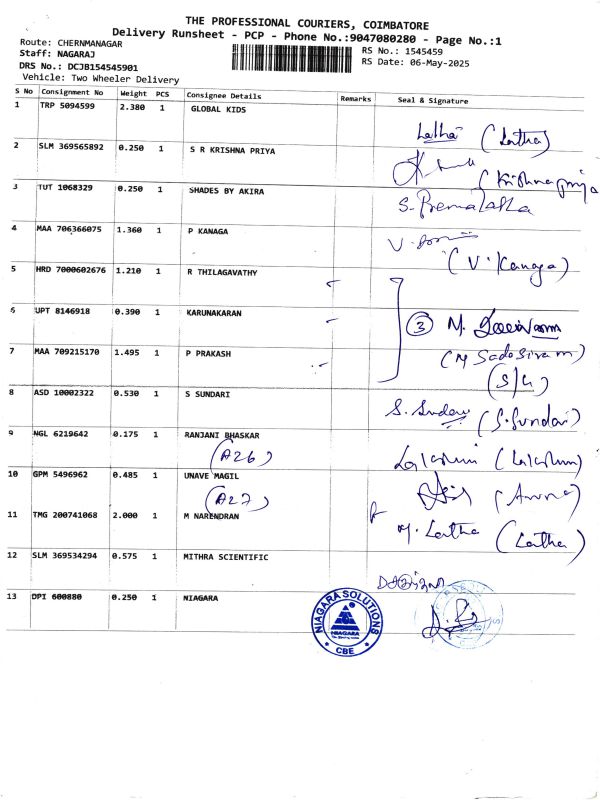 THE PROFESSIONAL COURIERS, COIMBATORE
Delivery Runsheet - PCP - Phone No.:9047080280 - Page No.:1
Route: CHERNMANAGAR
RS No.: 1545459
Staff: NAGARAJ
RS Date: 06-May-2025
DRS No.: DCJB154545901
Vehicle: Two Wheeler Delivery
S No Consignment No Weight PCS Consignee Details Remarks Seal & Signature
1 TRP 5094599 2.380 1 GLOBAL KIDS
Latha (Latha)
2 SLM 369565892 0.250 1 S R KRISHNA PRIYA
(Krishnapriya
3 TUT 1068329 0.250 1 SHADES BY AKIRA
S. Premalatha
4 MAA 706366075 1.360 1 P KANAGA
(V. Kanaga)
5 HRD 7000602676 1.210 1 R THILAGAVATHY
6 UPT 8146918 0.390 1 KARUNAKARAN
3 M.
7 MAA 709215170 1.495 1 P PRAKASH
(M Sadasivam)
(S/G)
8 ASD 10002322 0.530 1 S SUNDARI
S. Sundari (S. Sundari)
9 NGL 6219642 0.175 1 RANJANI BHASKAR
(A26)
10 GPM 5496962 0.485 1 UNAVE MAGIL
(A27)
11 TMG 200741068 2.000 1 M NARENDRAN
M. Latha (Latha)
12 SLM 369534294 0.575 1 MITHRA SCIENTIFIC
13 DPI 600880 0.250 1 NIAGARA
NIAGARA SOLUTIONS
NIAGARA
CBE